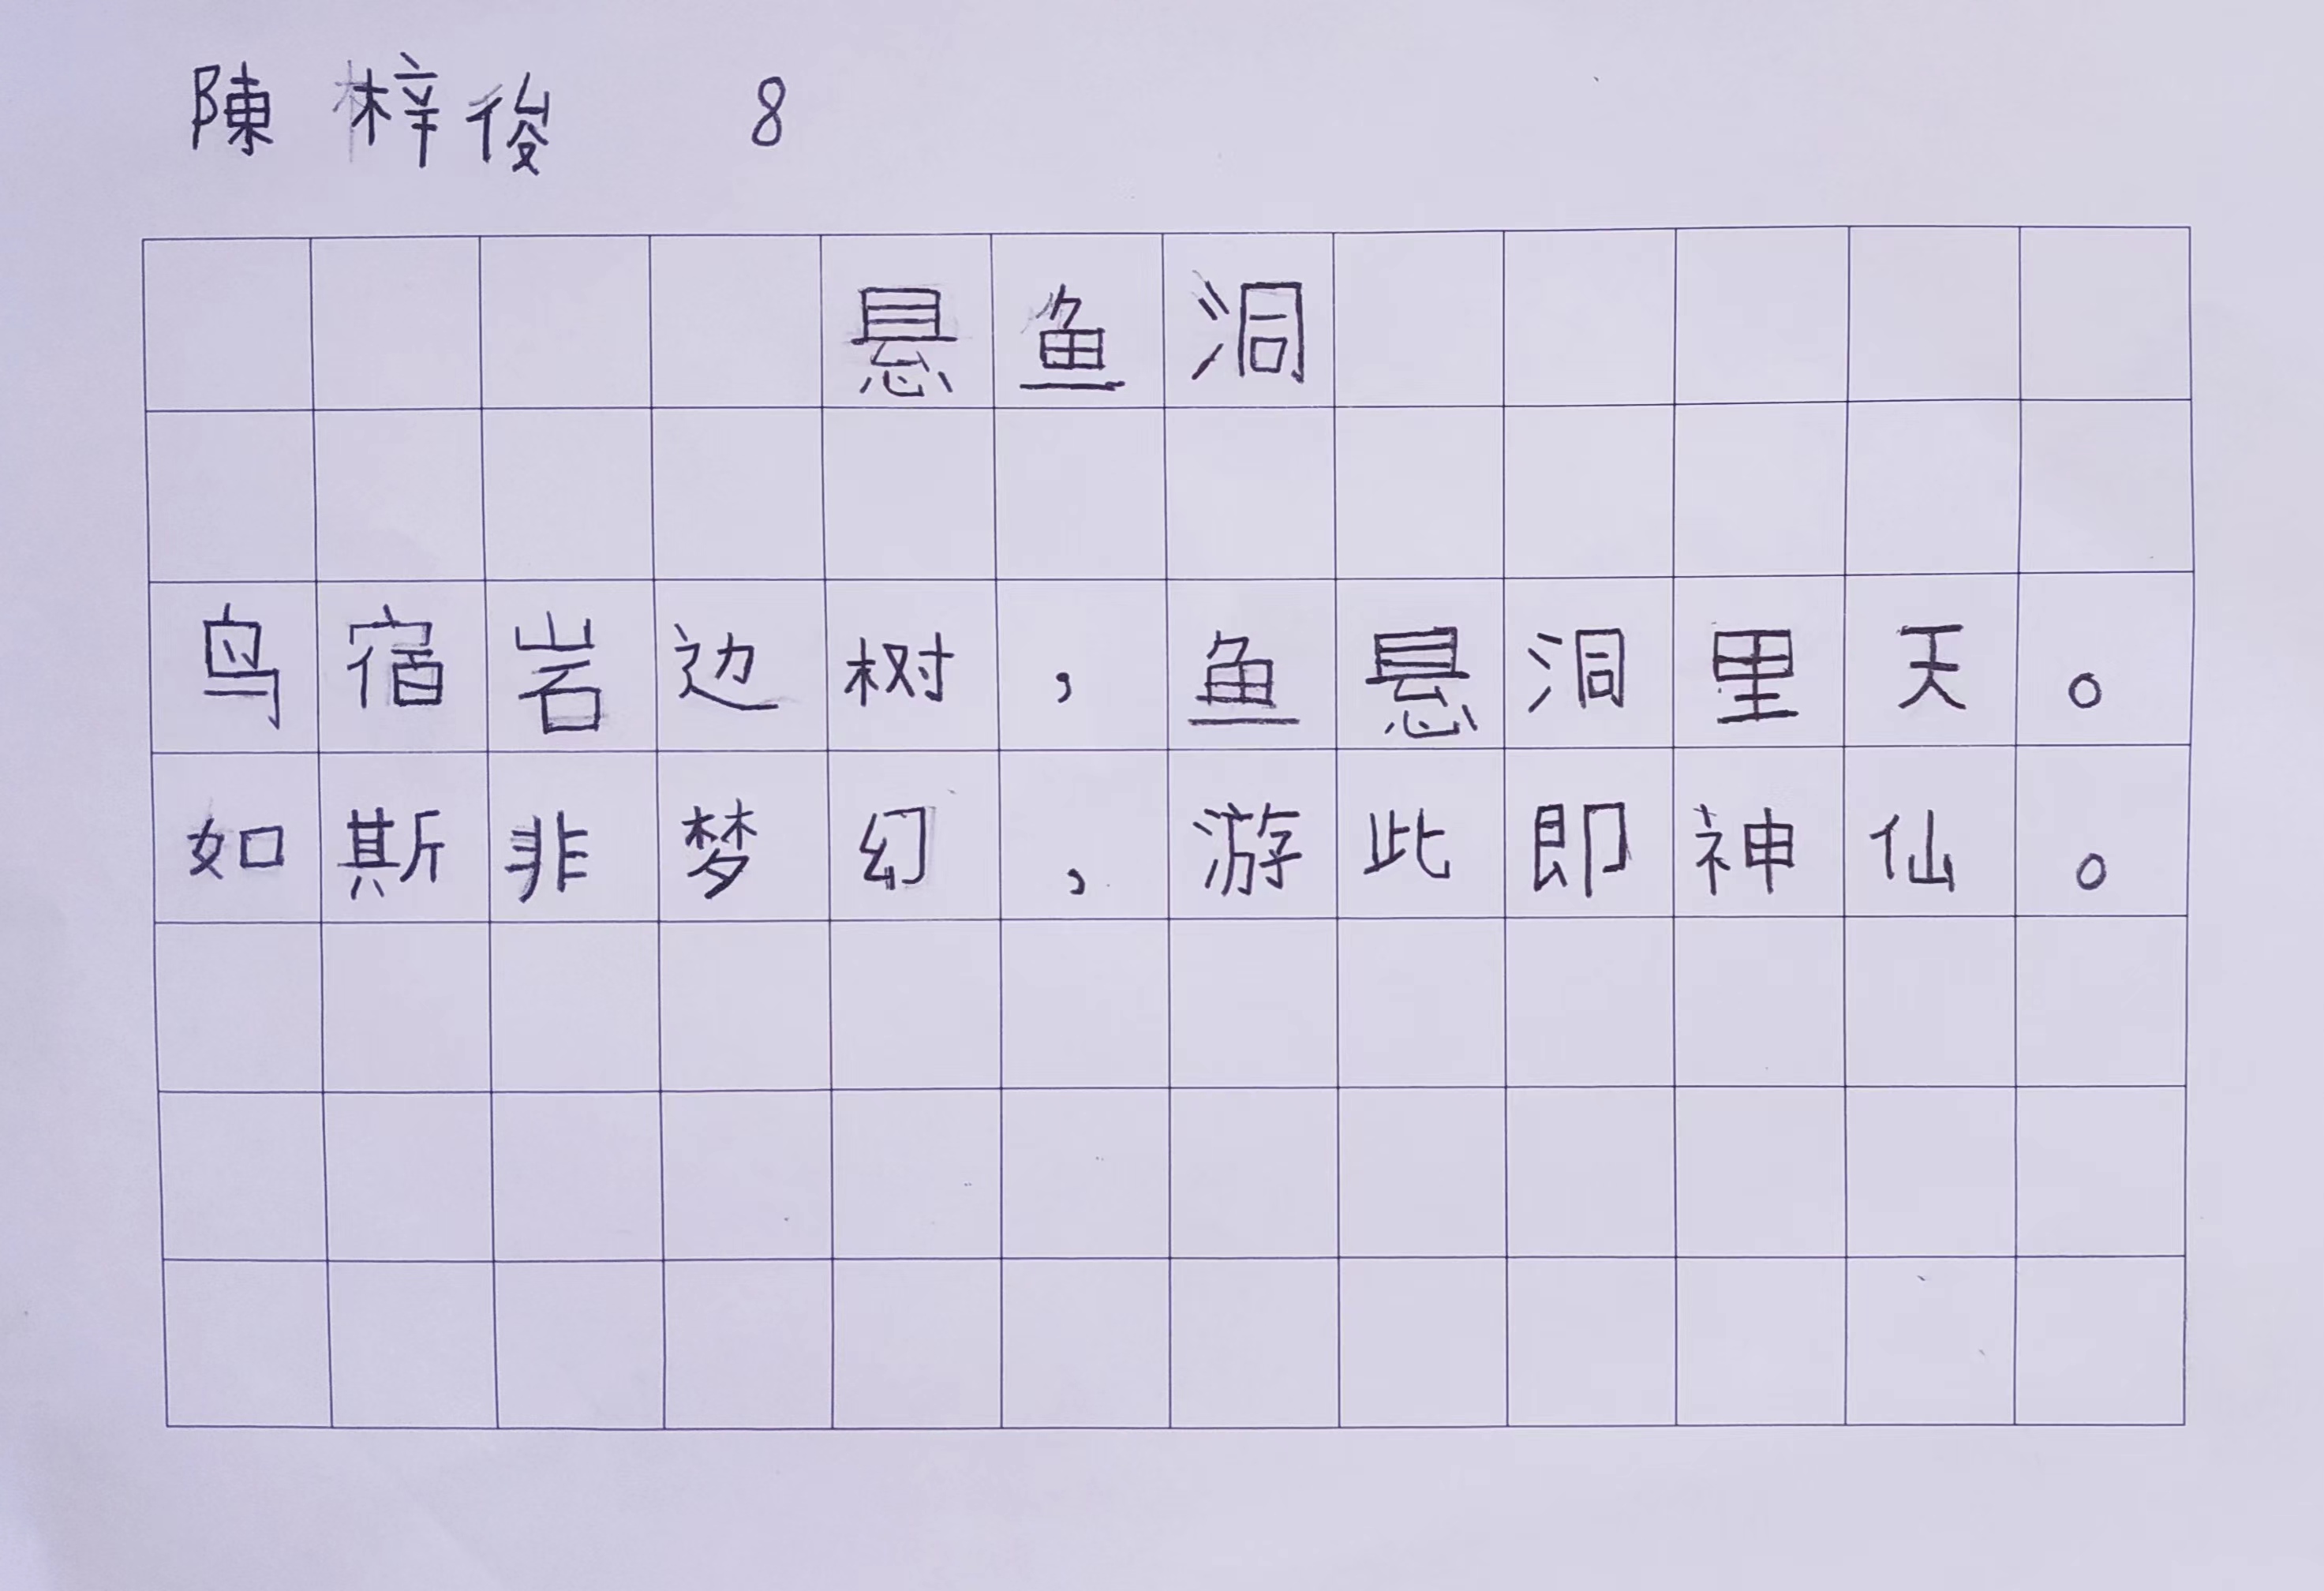 陳梓俊 8
悬鱼洞
鸟宿岩边树，鱼悬洞里天。
如斯非梦幻，游此即神仙。